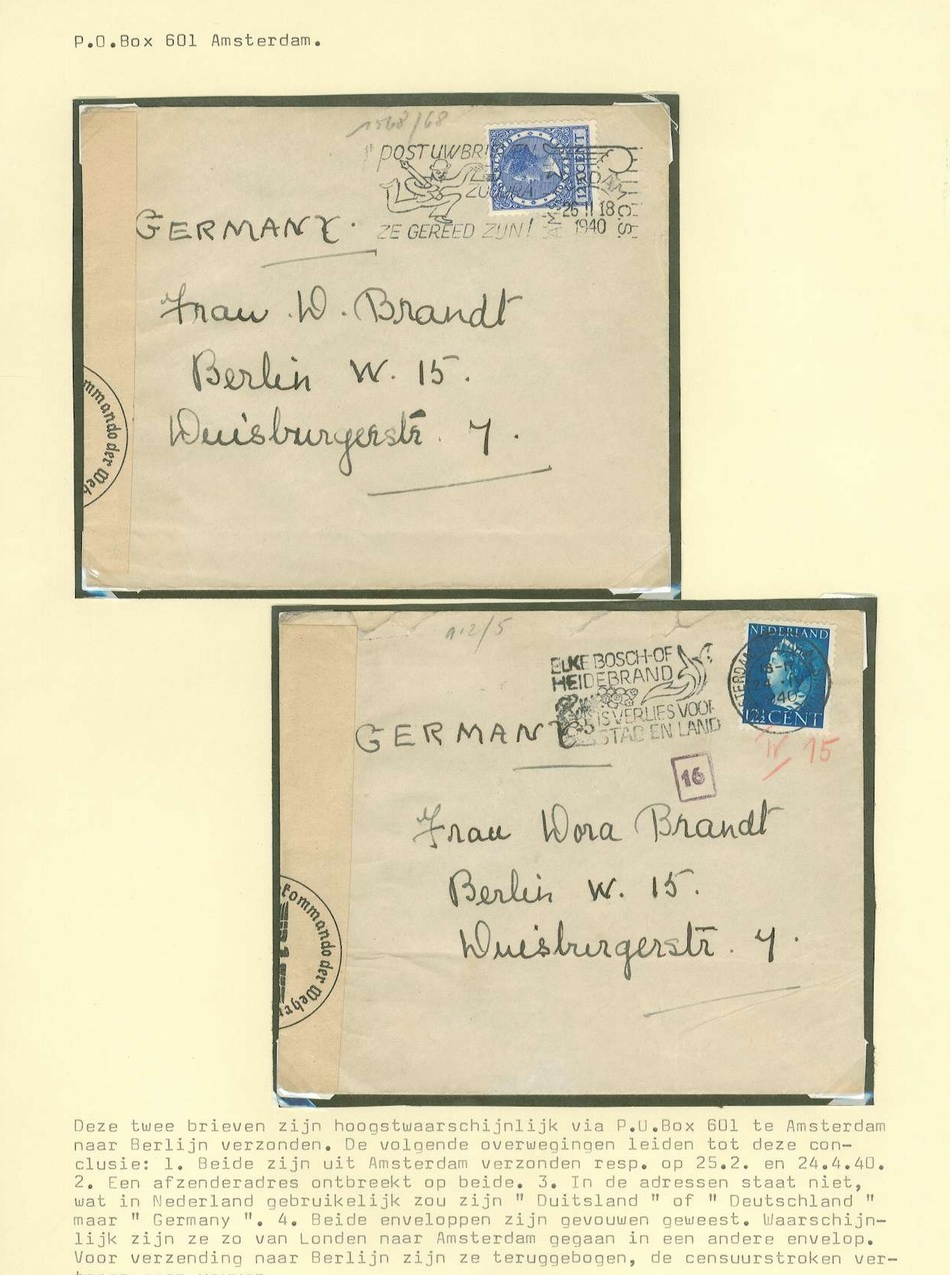 P.O.Box 601 Amsterdam.
1568/68
POST UW BRIEVEN
ZE GEREED ZIJN!
12½ CENT
26 II 18
1940
GERMANY.
Frau D. Brandt
Berlin W. 15.
Duisburgerstr. 7.
mmando der Weh
ELKE BOSCH-OF
HEIDEBRAND
IS VERLIES VOOR
STAD EN LAND
NEDERLAND
1940
12½ CENT
GERMANY
15
16
Frau Dora Brandt
Berlin W. 15.
Duisburgerstr. 7.
kommando der Wehr
Deze twee brieven zijn hoogstwaarschijnlijk via P.O.Box 601 te Amsterdam
naar Berlijn verzonden. De volgende overwegingen leiden tot deze con-
clusie: 1. Beide zijn uit Amsterdam verzonden resp. op 25.2. en 24.4.40.
2. Een afzenderadres ontbreekt op beide. 3. In de adressen staat niet,
wat in Nederland gebruikelijk zou zijn " Duitsland " of " Deutschland "
maar " Germany ". 4. Beide enveloppen zijn gevouwen geweest. Waarschijn-
lijk zijn ze zo van Londen naar Amsterdam gegaan in een andere envelop.
Voor verzending naar Berlijn zijn ze teruggebogen, de censuurstroken ver-